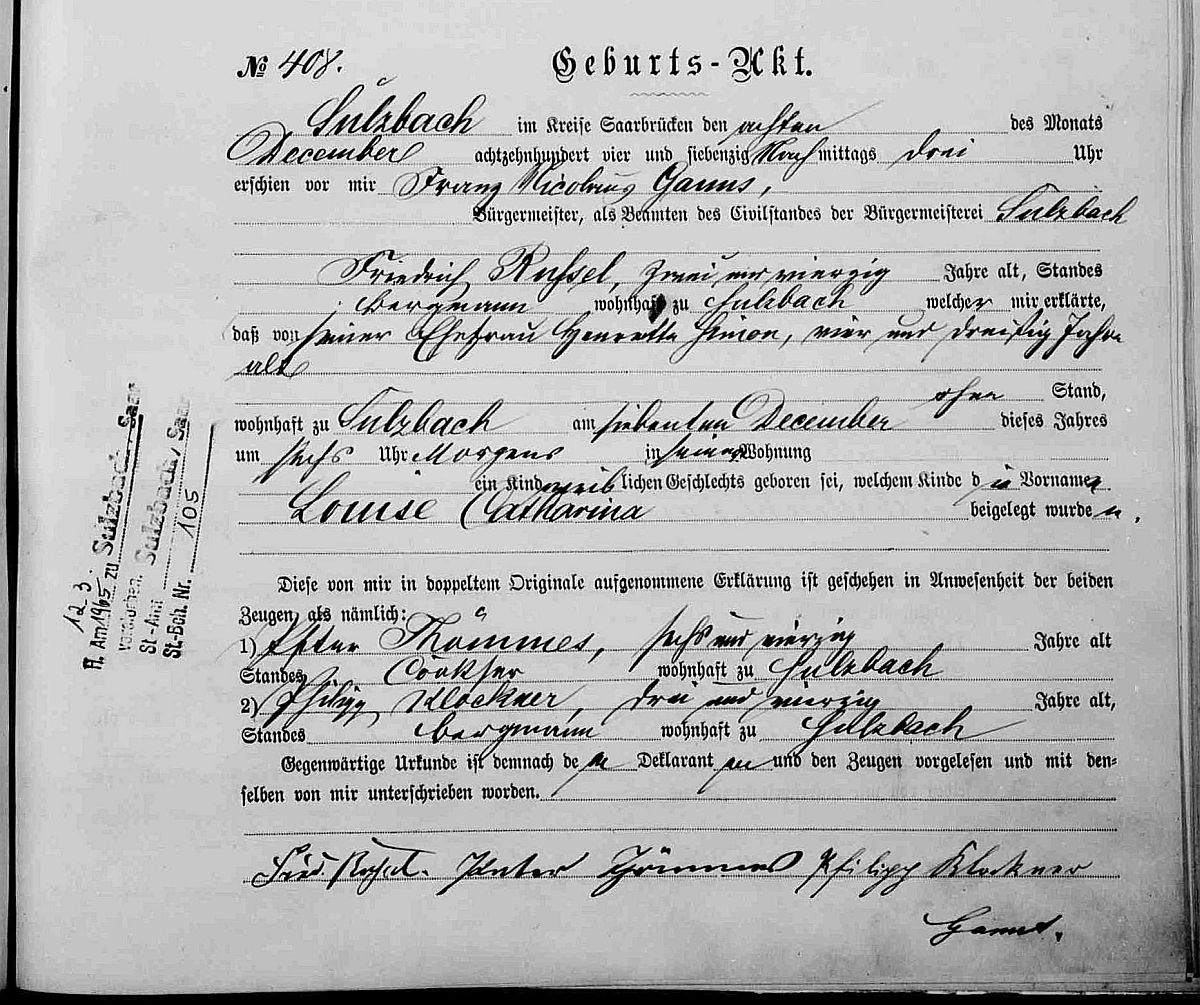 № 408. Geburts-Akt.
Sulzbach im Kreise Saarbrücken den achten des Monats
December achtzehnhundert vier und siebenzig Nachmittags drei Uhr
erschien vor mir Franz Nicolaus
Bürgermeister, als Beamten des Civilstandes der Bürgermeisterei Sulzbach
Friedrich zwei und vierzig Jahre alt, Standes
Bergmann wohnhaft zu Sulzbach welcher mir erklärte,
daß von seiner Ehefrau Henrette Simon, vier und dreißig Jahre
alt
ohne Stand,
wohnhaft zu Sulzbach am siebenten December dieses Jahres
um sechs Uhr Morgens in seiner Wohnung
ein Kind weiblichen Geschlechts geboren sei, welchem Kinde die Vornamen
Louise Catharina beigelegt wurden.
Diese von mir in doppeltem Originale aufgenommene Erklärung ist geschehen in Anwesenheit der beiden
Zeugen als nämlich:
1) Peter Thömmes, sechs und vierzig Jahre alt
Standes wohnhaft zu Sulzbach
2) Philipp Klockner, drei und vierzig Jahre alt,
Standes Bergmann wohnhaft zu Sulzbach
Gegenwärtige Urkunde ist demnach dem Deklaranten und den Zeugen vorgelesen und mit den-
selben von mir unterschrieben worden.
Peter Thömmes Philipp Klockner
12 3
H. Am 1965 zu Sulzbach, Saar
verstorben.
St.-Amt Sulzbach, Saar
St.-Bch. Nr. 105